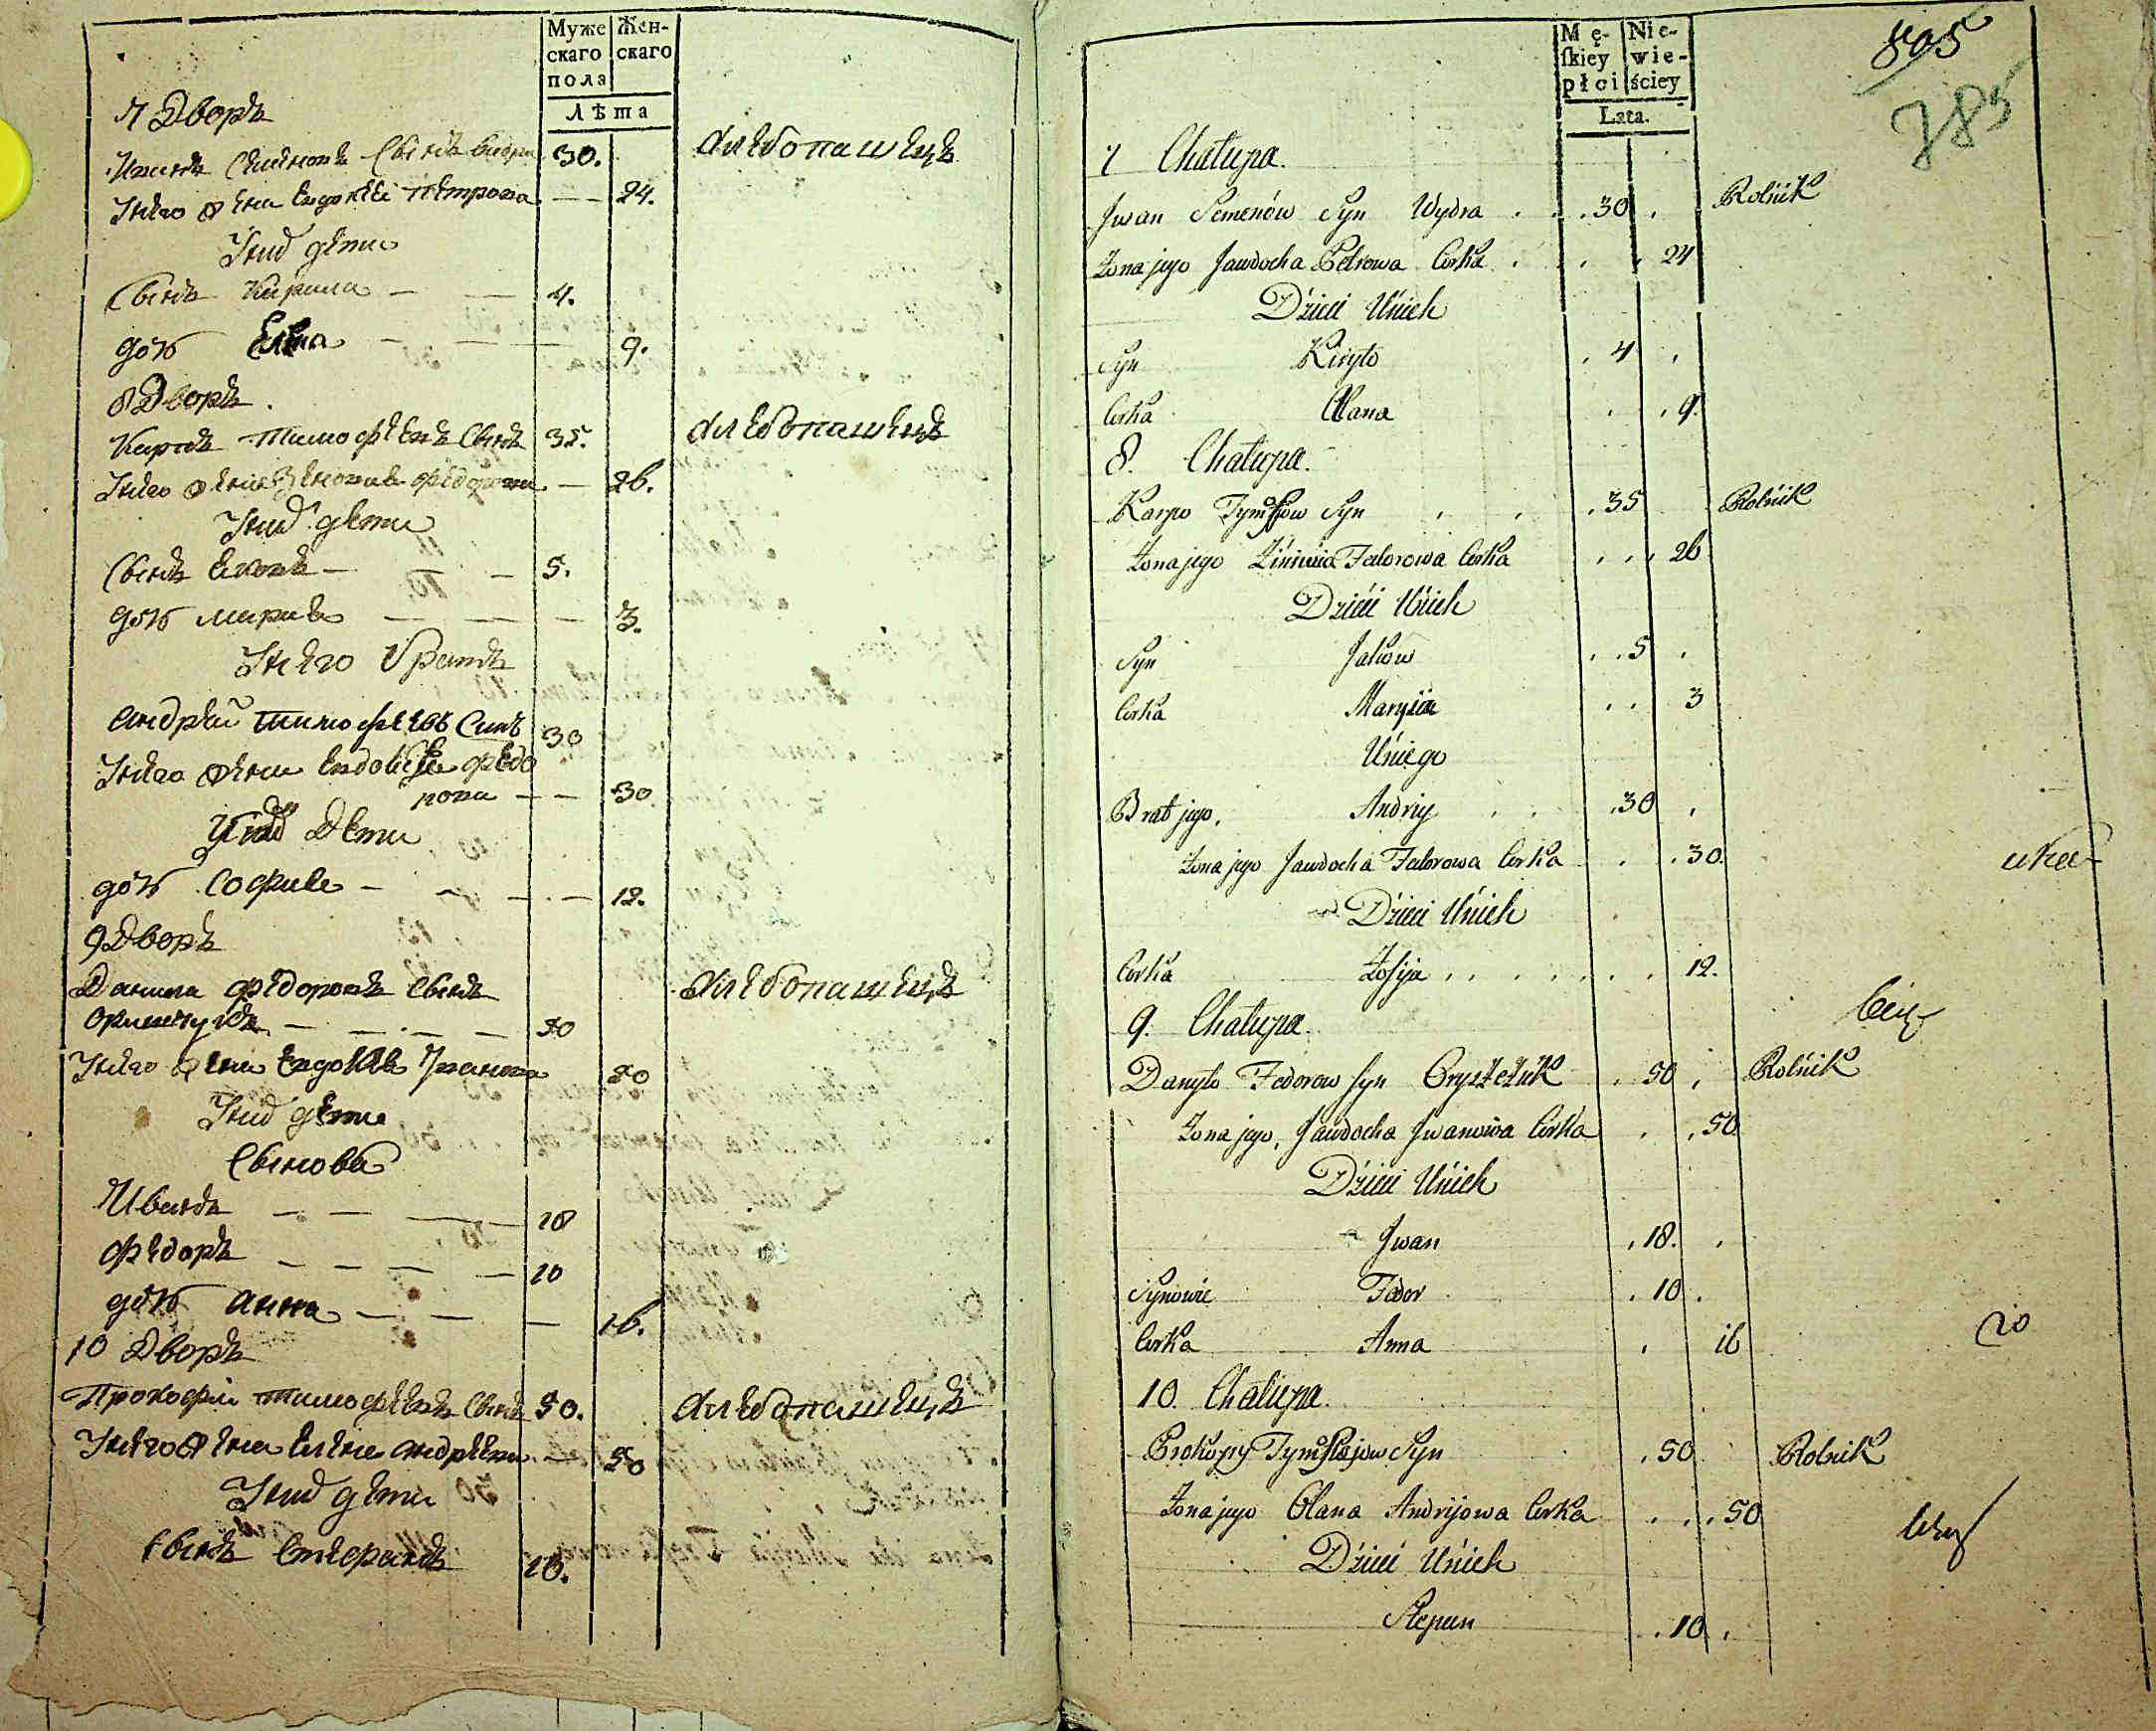 Муже
скаго
пола
Жен-
скаго
Лѣта
7 Дворъ
Иванъ Семеновъ Сынъ Видра 30. хлебопашецъ
Унего жена Евдокеи Петрова — — 24.
Уних дети
Сынъ Кирила — — 4.
дочь Елена — — — 9.
8 Дворъ
Карпъ Тимофеевъ Сынъ 35. хлебопашецъ
Унего жена Зеновия Федорова — 26.
Уних дети
Сынъ Яковъ — — 5.
дочь Мария — — — — 3.
Унего братъ
Андрей Тимофеевъ Синъ 30
Унего жена Евдокия Федо
рова — — 30
Уних Дети
дочь София — — — — 12.
9 Дворъ
Данила Федоровъ Сынъ хлебопашецъ
— — — — 50
Унего жена Евдокия Иванова 50
Уних дети
Сынова
Иванъ — — — — 18
Федоръ — — — — — 10
дочь Анна — — — 16.
10 Дворъ
Прокофий Тимофеевъ Сынъ 50. хлебопашецъ
Унего жена Елена Андреева — 50
Уних дети
Сынъ Степанъ 10.
Mę-
ſkiey
płci
Nie-
wie-
ściey
Lata.
805
785
7 Chałupa.
Jwan Semenów Syn Wydra . . . 30 . Rolnik
Żona jego Jawdocha Petrowa Corka . . . 24
Dzieci Unich
Syn Kiryło . 4 .
Corka Ołana . . 9.
8. Chałupa.
Karpo Tymofiow Syn . . . 35 Rolnik
Żona jego Ziniwia Fedorowa Corka . . . 26
Dzieci Unich
Syn Jakow . . 5 .
Corka Maryija . . 3
Uniego
Brat jego, Andriy . . . 30 .
Żona jego Jawdocha Fedorowa Corka . . 30.
Dzieci Unich
Corka Zofija . . . . . . . 12.
9. Chałupa.
Danyło Fedorow Syn Oryszczuk . 50 . Rolnik
Żona jego, Jawdocha Jwanowa Corka . . 50
Dzieci Unich
Jwan . 18. .
Synowie Fedor . 10 .
Corka Anna . 16
10. Chałupa.
Prokopy Tymofiejow Syn . 50 Rolnik
Żona jego Ołana Andrijowa Corka . . . 50
Dzieci Unich
Stepan . 10 .